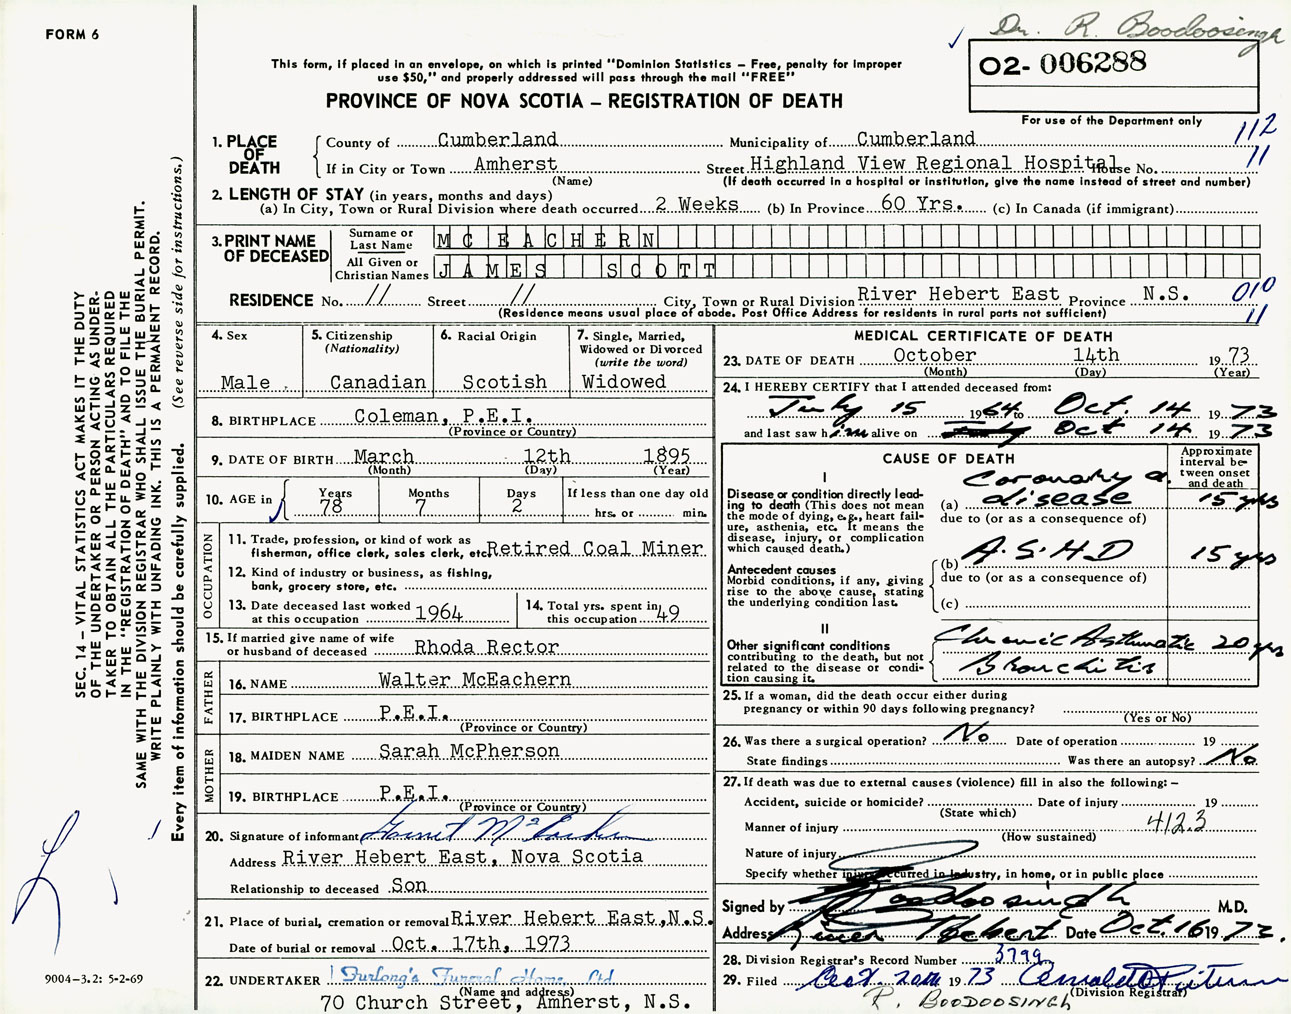 FORM 6
Dr. R. Boodoosingh
This form, if placed in an envelope, on which is printed "Dominion Statistics — Free, penalty for improper
use $50," and properly addressed will pass through the mail "FREE"
PROVINCE OF NOVA SCOTIA — REGISTRATION OF DEATH
02- 006288
For use of the Department only
112
11
1. PLACE OF DEATH
County of Cumberland Municipality of Cumberland
If in City or Town Amherst Street Highland View Regional Hospital House No.
(Name) (If death occurred in a hospital or institution, give the name instead of street and number)
2. LENGTH OF STAY (in years, months and days)
(a) In City, Town or Rural Division where death occurred 2 Weeks (b) In Province 60 Yrs. (c) In Canada (if immigrant)
3. PRINT NAME OF DECEASED
Surname or Last Name MC EACHERN
All Given or Christian Names JAMES SCOTT
RESIDENCE No. // Street // City, Town or Rural Division River Hebert East Province N.S. 010
(Residence means usual place of abode. Post Office Address for residents in rural parts not sufficient) 11
4. Sex
Male
5. Citizenship
(Nationality)
Canadian
6. Racial Origin
Scotish
7. Single, Married,
Widowed or Divorced
(write the word)
Widowed
8. BIRTHPLACE Coleman, P.E.I.
(Province or Country)
9. DATE OF BIRTH March 12th 1895
(Month) (Day) (Year)
10. AGE in Years Months Days If less than one day old
78 7 2 hrs. or min.
OCCUPATION
11. Trade, profession, or kind of work as
fisherman, office clerk, sales clerk, etc. Retired Coal Miner
12. Kind of industry or business, as fishing,
bank, grocery store, etc.
13. Date deceased last worked
at this occupation 1964
14. Total yrs. spent in
this occupation 49
15. If married give name of wife
or husband of deceased Rhoda Rector
FATHER
16. NAME Walter McEachern
17. BIRTHPLACE P.E.I.
(Province or Country)
MOTHER
18. MAIDEN NAME Sarah McPherson
19. BIRTHPLACE P.E.I.
(Province or Country)
20. Signature of informant
Address River Hebert East, Nova Scotia
Relationship to deceased Son
21. Place of burial, cremation or removal River Hebert East, N.S.
Date of burial or removal Oct. 17th, 1973
22. UNDERTAKER Furlong's Funeral Home Ltd
(Name and address)
70 Church Street, Amherst, N.S.
MEDICAL CERTIFICATE OF DEATH
23. DATE OF DEATH October 14th 1973
(Month) (Day) (Year)
24. I HEREBY CERTIFY that I attended deceased from:
July 15 1964 to Oct. 14 1973
and last saw him alive on Oct 14 1973
CAUSE OF DEATH
Approximate
interval be-
tween onset
and death
I
Disease or condition directly lead-
ing to death (This does not mean
the mode of dying, e.g., heart fail-
ure, asthenia, etc. It means the
disease, injury, or complication
which caused death.)
Coronary a.
(a) disease 15 yrs
due to (or as a consequence of)
Antecedent causes
Morbid conditions, if any, giving
rise to the above cause, stating
the underlying condition last.
(b) A.S.H.D 15 yrs
due to (or as a consequence of)
(c)
II
Other significant conditions
contributing to the death, but not
related to the disease or condi-
tion causing it.
Chronic Asthmatic 20 yrs
Bronchitis
25. If a woman, did the death occur either during
pregnancy or within 90 days following pregnancy?
(Yes or No)
26. Was there a surgical operation? No Date of operation 19
State findings Was there an autopsy? No
27. If death was due to external causes (violence) fill in also the following:—
Accident, suicide or homicide? Date of injury 19
(State which)
Manner of injury 412.3
(How sustained)
Nature of injury
Specify whether injury occurred in Industry, in home, or in public place
Signed by Boodoosingh M.D.
Address River Hebert Date Oct. 16 1973.
28. Division Registrar's Record Number 3799
29. Filed Oct. 20th 1973
(Division Registrar)
R. BOODOOSINGH
SEC. 14 – VITAL STATISTICS ACT MAKES IT THE DUTY
OF THE UNDERTAKER OR PERSON ACTING AS UNDER-
TAKER TO OBTAIN ALL THE PARTICULARS REQUIRED
IN THE "REGISTRATION OF DEATH" AND TO FILE THE
SAME WITH THE DIVISION REGISTRAR WHO SHALL ISSUE THE BURIAL PERMIT.
WRITE PLAINLY WITH UNFADING INK. THIS IS A PERMANENT RECORD.
Every item of information should be carefully supplied. (See reverse side for instructions.)
9004–3.2: 5-2-69